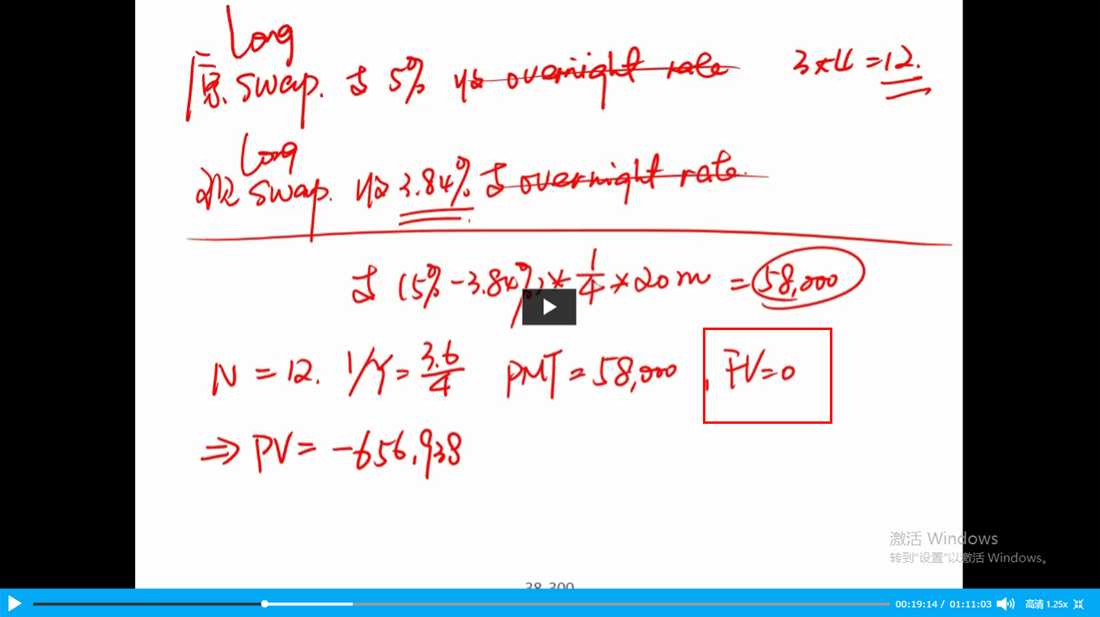 Long
原 swap. 付 5% 收 overnight rate 3×4=12.
Long
现 swap. 收 3.84% 付 overnight rate.
付 (5%-3.84%)*1/4*20m = 58,000
N = 12. I/Y = 3.6/4 PMT = 58,000, FV=0
⇒ PV = -656,938
激活 Windows
转到"设置"以激活 Windows。
38-300
00:19:14 / 01:11:03 高清 1.25x